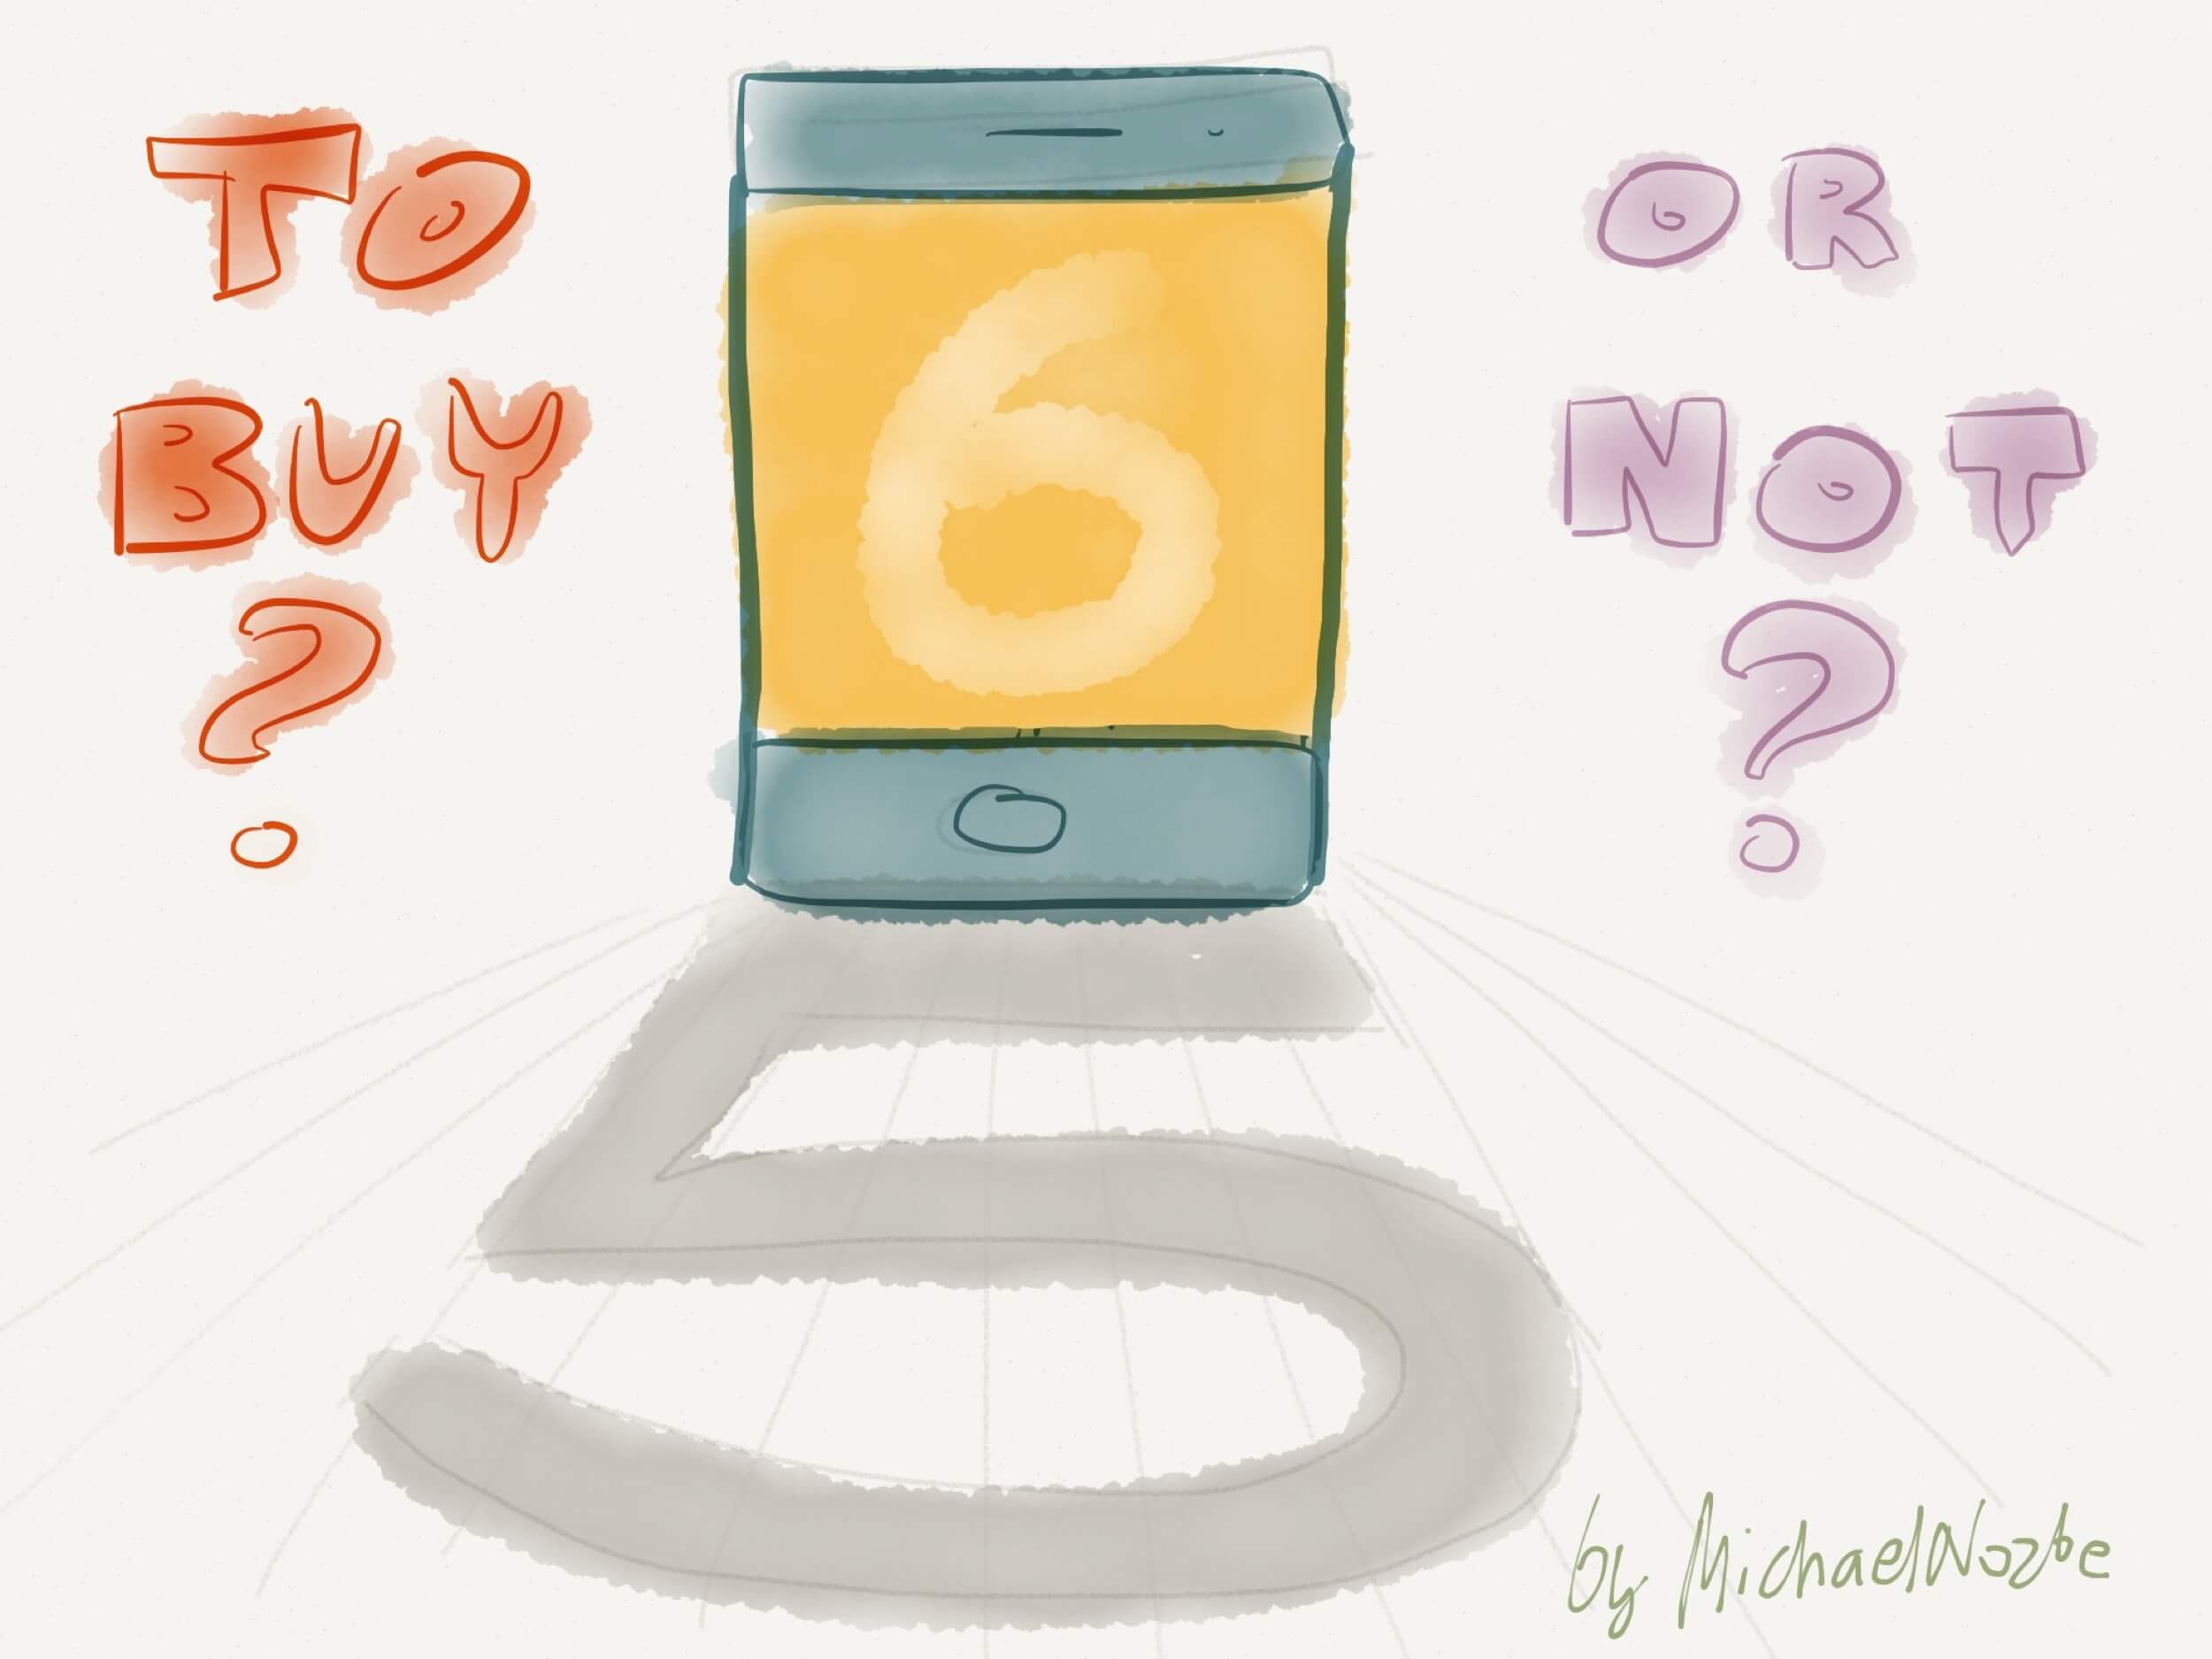 TO
BUY
?
6
OR
NOT
?
5
by MichaelNozbe